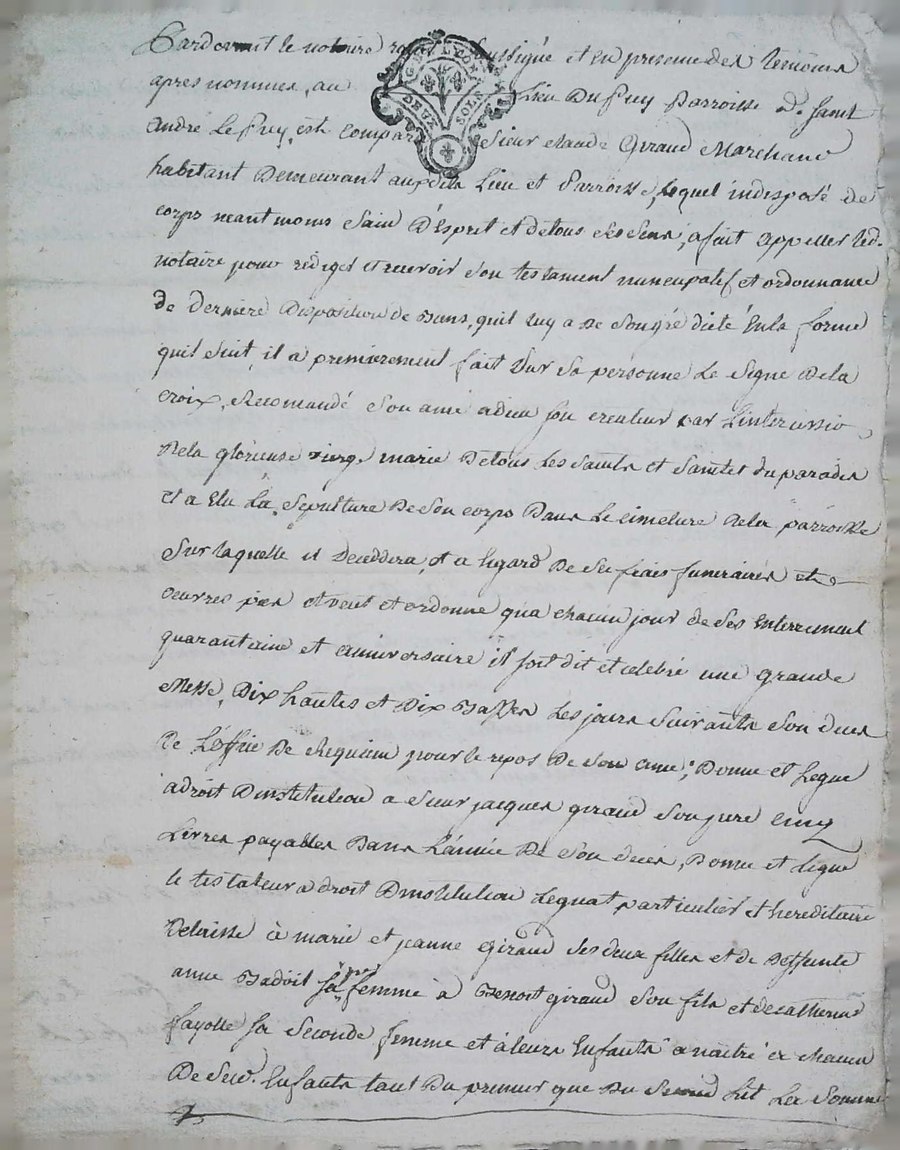 Pardevant le notaire royal soussigné et en presence des temoins
apres nommes, au lieu Du Puy Parroisse de Saint
André Le Puy, est comparu Sieur claude Giraud Marchand
habitant Demeurant auxdits Lieu et Parroisse, lequel indisposé de
corps neantmoins Sain D'Esprit et de tous Ses Sens, a fait appeller led.
notaire pour rediger et recevoir Son testament nuncupatif et ordonnance
de derniere Disposition de Biens, quil luy a De Son gré dicté En la forme
quil Suit, il a premierement fait Sur Sa personne Le Signe De la
croix, Recomandé Son ame a dieu Son createur par L'intercession
De la glorieuse vierge marie De tous Les Saints et Saintes du paradis
et a Elu La Sepulture De Son corps Dans Le cimetiere De la parroisse
Sur laquelle il Deceddera, et a legard De Ses fraits funeraires et
oeuvres pies il veut et ordonne qua chacun jour de Ses Enterrement
quarantaine et anniversaire il Soit dit et celebré une grande
Messe, Dix hautes et Dix Basses Les jours Suivants Son deces
De L'office De Requiem pour le repos De Son ame; Donne et Legue
a droit Dinstitution a Sieur jacques giraud Son pere cinq
Livres payables Dans L'année De Son deces, Donne et legue
le testateur a droit Dinstitution Legnat particulier et hereditaire
Delaisse à marie et jeanne Giraud Ses deux filles et de Deffunte
anne Badoit Sa pre femme à Benoit giraud Son fils et de catherine
fayolle Sa Seconde femme et à leurs Enfants a naitre et chacun
De Sesd. Enfants tant Du premier que Du Second Lit La Somme